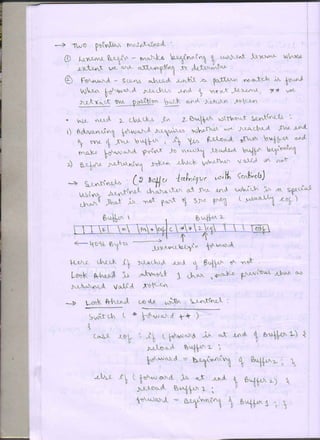 → Two pointers maintained :
① Lexeme Begin - marks beginning of current lexeme whose
extent we are attempting to determine
② Forward - scans ahead until a pattern match is found
When forward reaches end of next lexeme, ** we
retract one position back and return token
• we need 2 checks in 2 Buffer without Sentinels :
1) Advancing forward requires whether we reached the end
of one of the buffer, if yes Reload other buffer and
make forward point to newly loaded buffer beginning
2) Before returning token check whether valid or not
→ Sentinels (2 Buffer technique with Sentinels)
Using sentinel character at the end which is a special
char that is not part of src prog (usually eof)
Buffer 1 Buffer 2
E = M * eof C * * 2 eof eof
4096 Bytes lexemebegin forward
Here check if reached end of Buffer or not
Look Ahead is almost 1 char, make previous char as
returned valid token
→ Look Ahead code with Sentinel :
Switch ( * forward ++ )
{
case eof : if (forward is at end of Buffer 1) {
reload Buffer 2 ;
forward = Beginning of Buffer 2 ; }
else if (forward is at end of Buffer 2) {
reload Buffer 1 ;
forward = Beginning of Buffer 1 ; }